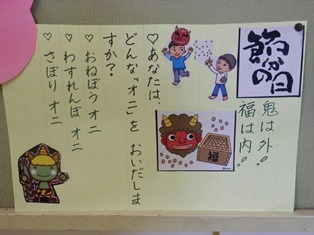 節分の日
鬼は外!!
福は内!!
♡あなたは、
どんな「オニ」を おいだしま
すか?
♡おねぼう オニ
♡わすれんぼ オニ
♡さぼり オニ
福